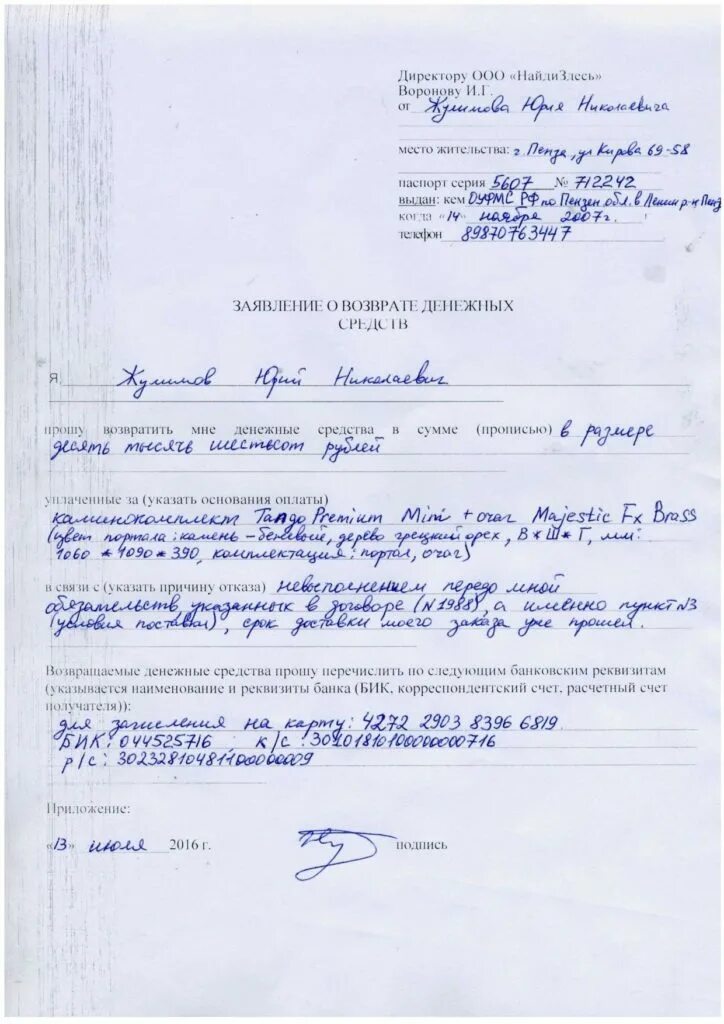 Директору ООО «НайдиЗдесь»
Воронову И.Г.
от Жулимова Юрия Николаевича
место жительства: г. Пенза, ул Кирова 69-58
паспорт серия 5607 № 712242
выдан: кем ОУФМС РФ по Пензен обл. в Ленин р-н Пенз
когда «14» ноября 2007 г.
телефон 89870763447
ЗАЯВЛЕНИЕ О ВОЗВРАТЕ ДЕНЕЖНЫХ
СРЕДСТВ
Я, Жулимов Юрий Николаевич
прошу возвратить мне денежные средства в сумме (прописью) в размере
десять тысяч шестьсот рублей
уплаченные за (указать основания оплаты)
каминокомплект Tango Premium Mini + очаг Majestic Fx Brass
(цвет портала: камень - бежевый, дерево грецкий орех, В*Ш*Г, мм:
1060 * 1090 * 390, комплектация: портал, очаг)
в связи с (указать причину отказа) невыполнением передо мной
обязательств, указанных в договоре (N1988), а именно пункт N3
(условия поставки), срок доставки моего заказа уже прошел.
Возвращаемые денежные средства прошу перечислить по следующим банковским реквизитам
(указывается наименование и реквизиты банка (БИК, корреспондентский счет, расчетный счет
получателя)):
для зачисления на карту: 4272 2903 8396 6819.
БИК: 044525716 к/с: 30101810100000000716
р/с: 30232810481100000009
Приложение:
«13» июля 2016 г. подпись